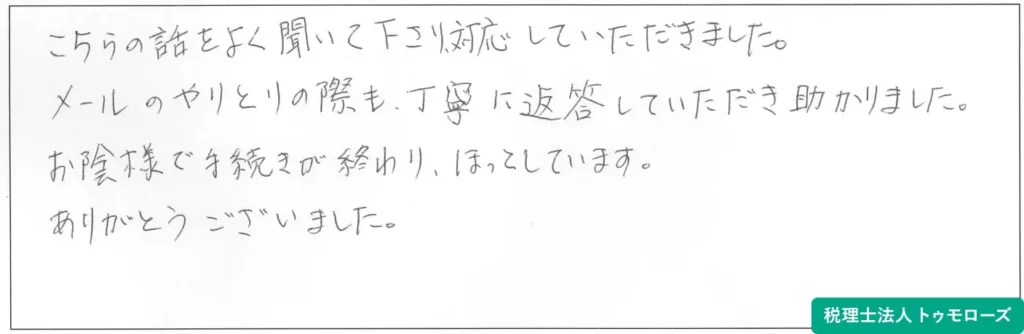 こちらの話をよく聞いて下さり対応していただきました。
メールのやりとりの際も、丁寧に返答していただき助かりました。
お陰様で手続きが終わり、ほっとしています。
ありがとうございました。
税理士法人トゥモローズ